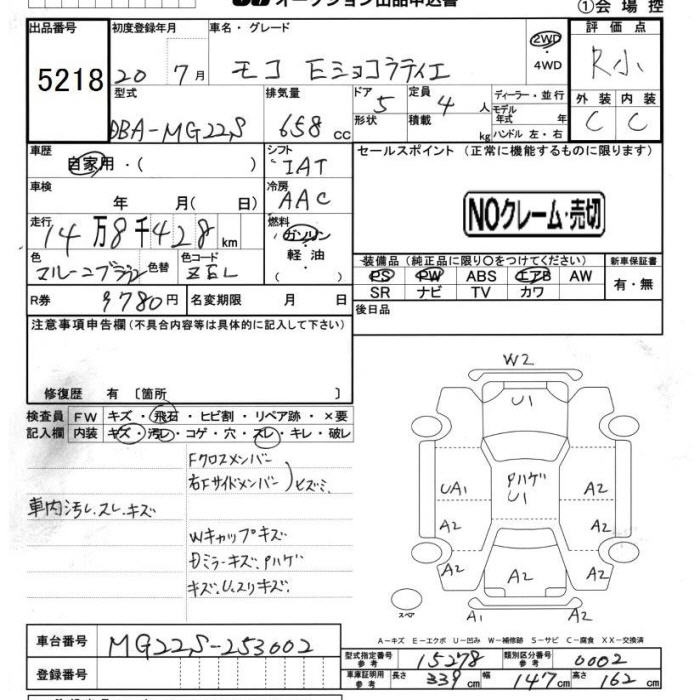 オークション出品申込書
①会場控
出品番号 初度登録年月 車名・グレード 評価点
5218 20 7月 モコ Eショコラティエ 2WD・4WD R小
型式 排気量 ドア 5 定員 4 人 ディーラー・並行 外装 内装
DBA-MG22S 658 cc 形状 積載 kg モデル年式 年 C C
ハンドル 左・右
車歴 シフト セールスポイント (正常に機能するものに限ります)
自家用・( ) IAT
車検 冷房 NOクレーム・売切
年 月( 日) AAC
走行 燃料
14万8千428km ガソリン・軽油・( )
色 色替 色コード 装備品(純正品に限り〇をつけてください) 新車保証書
マルーンブラウン ZEL PS PW ABS エアB AW 有・無
SR ナビ TV カワ
R券 9780円 名変期限 月 日 後日品
注意事項申告欄(不具合内容等は具体的に記入して下さい)
修復歴 有 〔箇所 〕
検査員 FW キズ・飛石・ヒビ割・リペア跡・×要
記入欄 内装 キズ・汚レ・コゲ・穴・スレ・キレ・破レ
Fクロスメンバー
右Fサイドメンバー)ヒズミ
車内汚レ.スレ.キズ
Wキャップキズ
キズ.U.スリキズ.
W2
U1
UA1 ハゲ A2
U1
A2 A2
A2 A2 A2
A1 A2
スペア
A-キズ E-エクボ U-凹み W-補修跡 S-サビ C-腐食 XX-交換済
車台番号 MG22S-253002
型式指定番号 参考 15278 類別区分番号 参考 0002
登録番号 車庫証明用 参考 長さ 339cm 幅 147cm 高さ 162cm